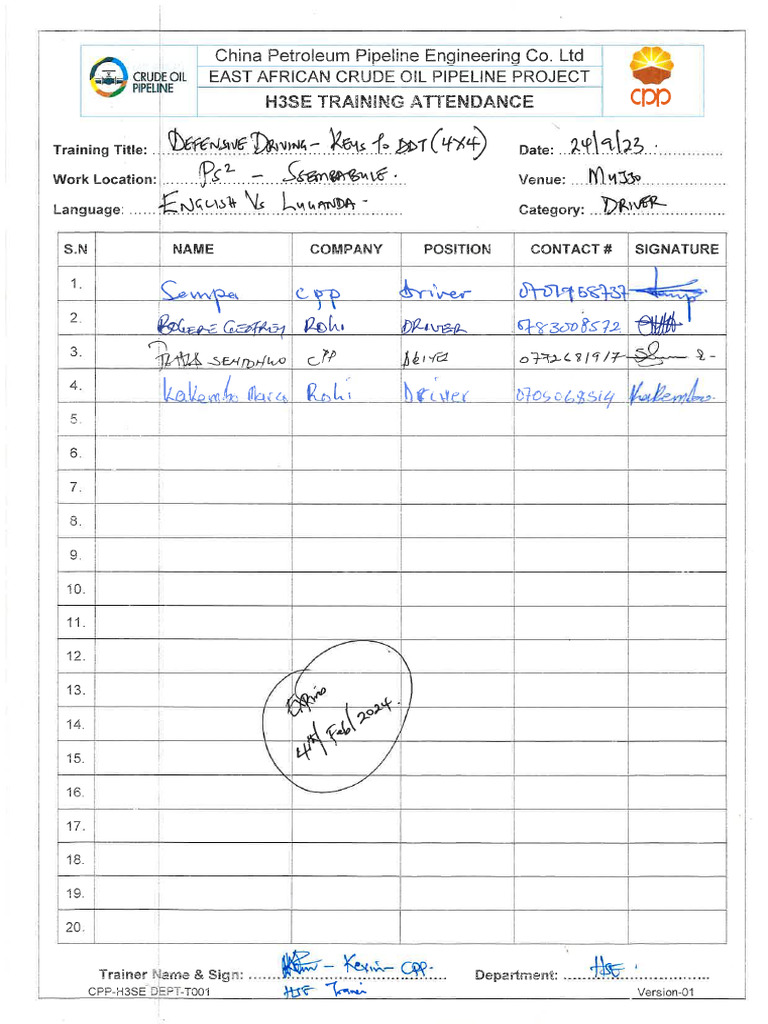 CRUDE OIL
PIPELINE
China Petroleum Pipeline Engineering Co. Ltd
EAST AFRICAN CRUDE OIL PIPELINE PROJECT
H3SE TRAINING ATTENDANCE
CPP
Training Title: DEFENSIVE DRIVING - KEYS TO DDT (4X4) Date: 24/9/23
Work Location: PS2 - SSEMBABULE. Venue: MUJJO
Language: ENGLISH VS LUGANDA - Category: DRIVER
S.N NAME COMPANY POSITION CONTACT # SIGNATURE
1. Sempa cpp driver 0701968737
2. BOGERE GEOFREY Rohi DRIVER 0783008572
3. SENDOWO CPP DRIVER 0772681917
4. Kakembo Marca Rohi Driver 0705068514 Kakembo
5.
6.
7.
8.
9.
10.
11.
12.
13.
14.
15.
16.
17.
18.
19.
20.
EXPIRING
4th/Feb/2024.
Trainer Name & Sign: - Kevin - CPP. Department: HSE.
CPP-H3SE DEPT-T001 HSE Trainer Version-01